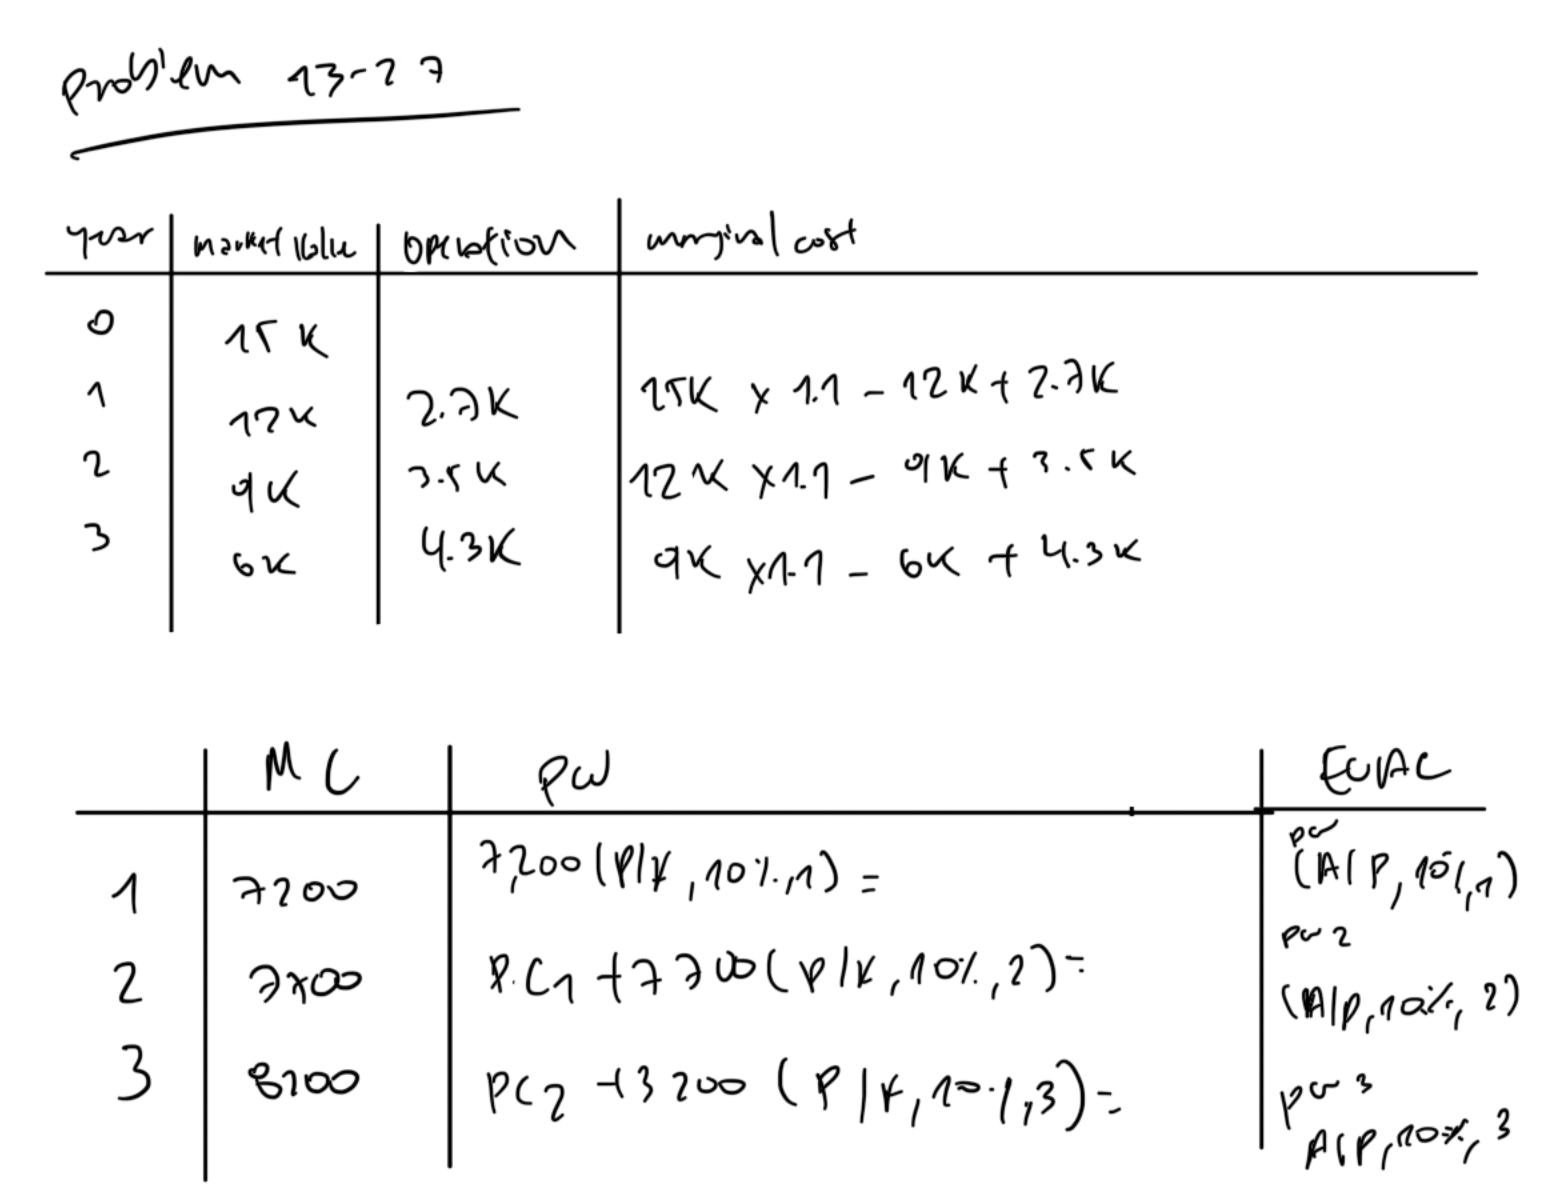 Problem 13-27
year market value operation marginal cost
0 15K
1 12K 2.7K 15K x 1.1 - 12K + 2.7K
2 9K 3.5K 12K x 1.1 - 9K + 3.5K
3 6K 4.3K 9K x 1.1 - 6K + 4.3K
MC PW EUAC
1 7200 7,200 (P/F, 10%, 1) = PW (A/P, 10%, 1)
2 7700 P.C1 + 7700 (P/F, 10%, 2) = PW 2 (A/P, 10%, 2)
3 8200 PC2 + 8200 (P/F, 10%, 3) = PW 3 A/P, 10%, 3